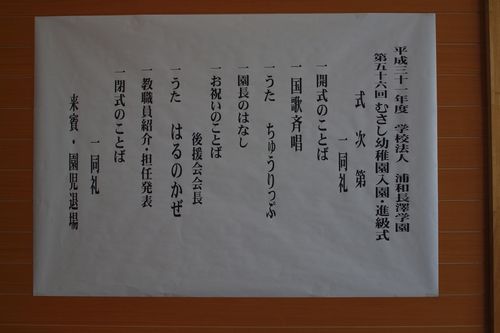 平成三十一年度 学校法人 浦和長澤学園
第五十六回 むさし幼稚園入園・進級式
式次第
一同礼
一開式のことば
一国歌斉唱
一うた ちゅうりっぷ
一園長のはなし
一お祝いのことば
後援会会長
一うた はるのかぜ
一教職員紹介・担任発表
一閉式のことば
一同礼
来賓・園児退場